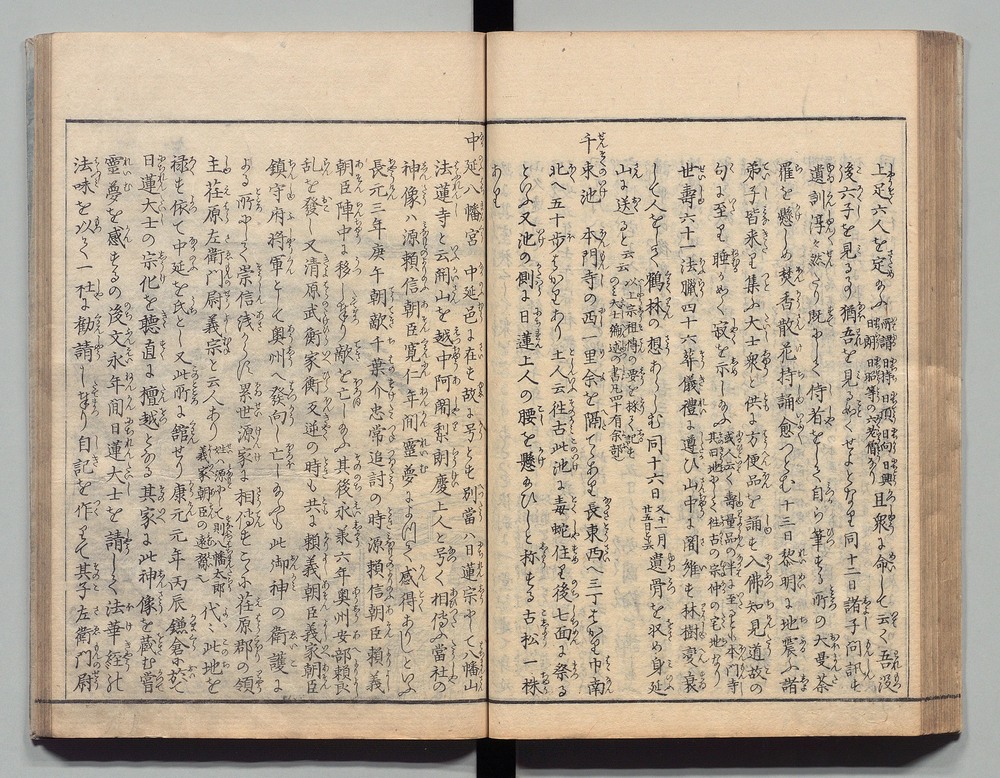 上足六人を定めふ所謂日持日頂日向日興日朗日昭等の六老僧なり且衆に命して云く吾没
後六子を見るゝ猶吾を見るめくせよとなり同十二日諸子問訊し
遺訓淳々然たり既にして侍者をして自ら筆する所の大曼荼
羅を懸しめ焚香散花持誦愈つとむ十三日黎明に地震ふ諸
弟子皆来り集ふ大士衆と供に方便品を誦し入佛知見道故の
句に至り睡るめく寂を示しふ或人云く壽量品の半に至ると本門寺其旧地にして往古の宗仲の宅地なり
世壽六十一法臘四十六葬儀禮に遵ひ山中に闍維も林樹変衰
して人をして鶴林の想あらしむ同十六日又十一月廿五日とも云遺骨を収め身延
山に送ると云云以上宗祖傳の要を採る
千束池 本門寺の西一里余を隔てあり長東西へ三丁はかり巾南
北へ五十歩はかりあり土人云往古此池に毒蛇住り後七面に祭る
といふ又池の側に日蓮上人の腰を懸ひしと称する古松一株
あり
中延八幡宮 中延邑に在も故に号とも別當ハ日蓮宗にして八幡山
法蓮寺と云開山を越中阿闍梨朗慶上人と号く相傳ふ當社の
神像ハ源頼信朝臣寛仁年間靈夢によつて感得ありしといふ
長元三年庚午朝敵千葉介忠常追討の時源頼信朝臣頼義
朝臣陣中に移しまり敵を亡しふ其後永義六年奥州安部頼良
乱を發し又清原武衡家衡叉逆の時も共に頼義朝臣義家朝臣
鎮守府将軍として奥州へ發向し亡しふも此御神の衛護に
よる所にして崇信浅からに累世源家に相傳もこゝに荏原郡の領
主荏原左衛門尉義宗と云人あり姓源にして則八幡太郎義家朝臣の遠裔也代々此地を
禄も依て中延を氏とし又此所に館せり康元元年丙辰鎌倉に於て
日蓮大士の宗化を聴直に檀越となる其家に此神像を蔵む嘗
靈夢を感するの後文永年間日蓮大士を請して法華経の
法味を以て一社に勧請しまり自記を作りて其子左衛門尉